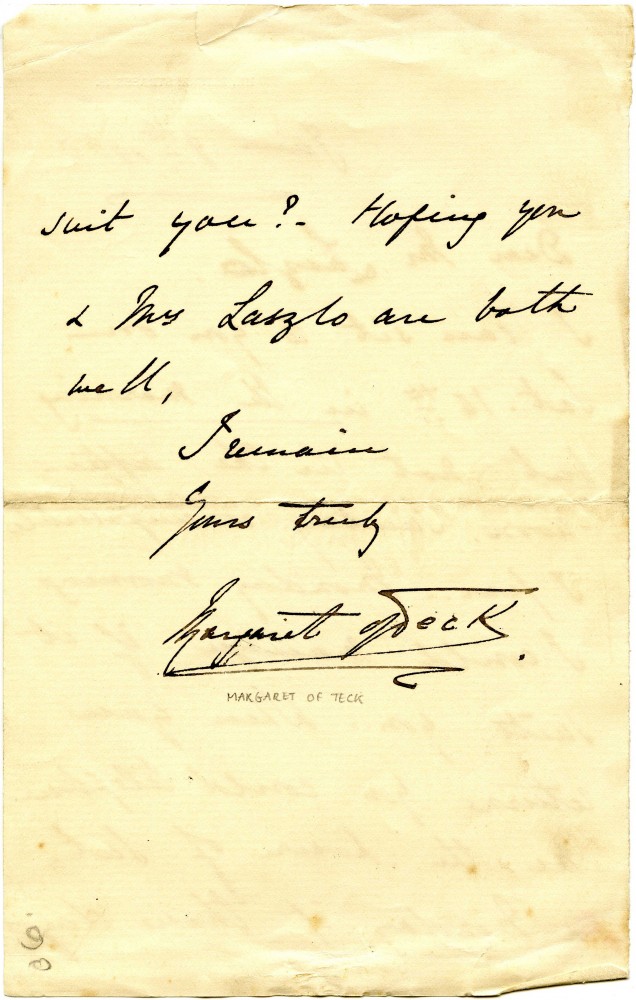 suit you? - Hoping you
& Mrs Laszlo are both
well,
I remain
Yours truly
Margaret of Teck
MARGARET OF TECK